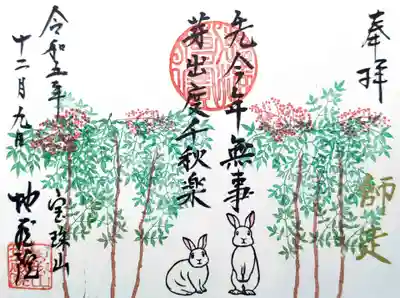 奉拝
師走
先今年無事
芽出度千秋楽
宝珠山
地蔵院
令和五年
十二月九日